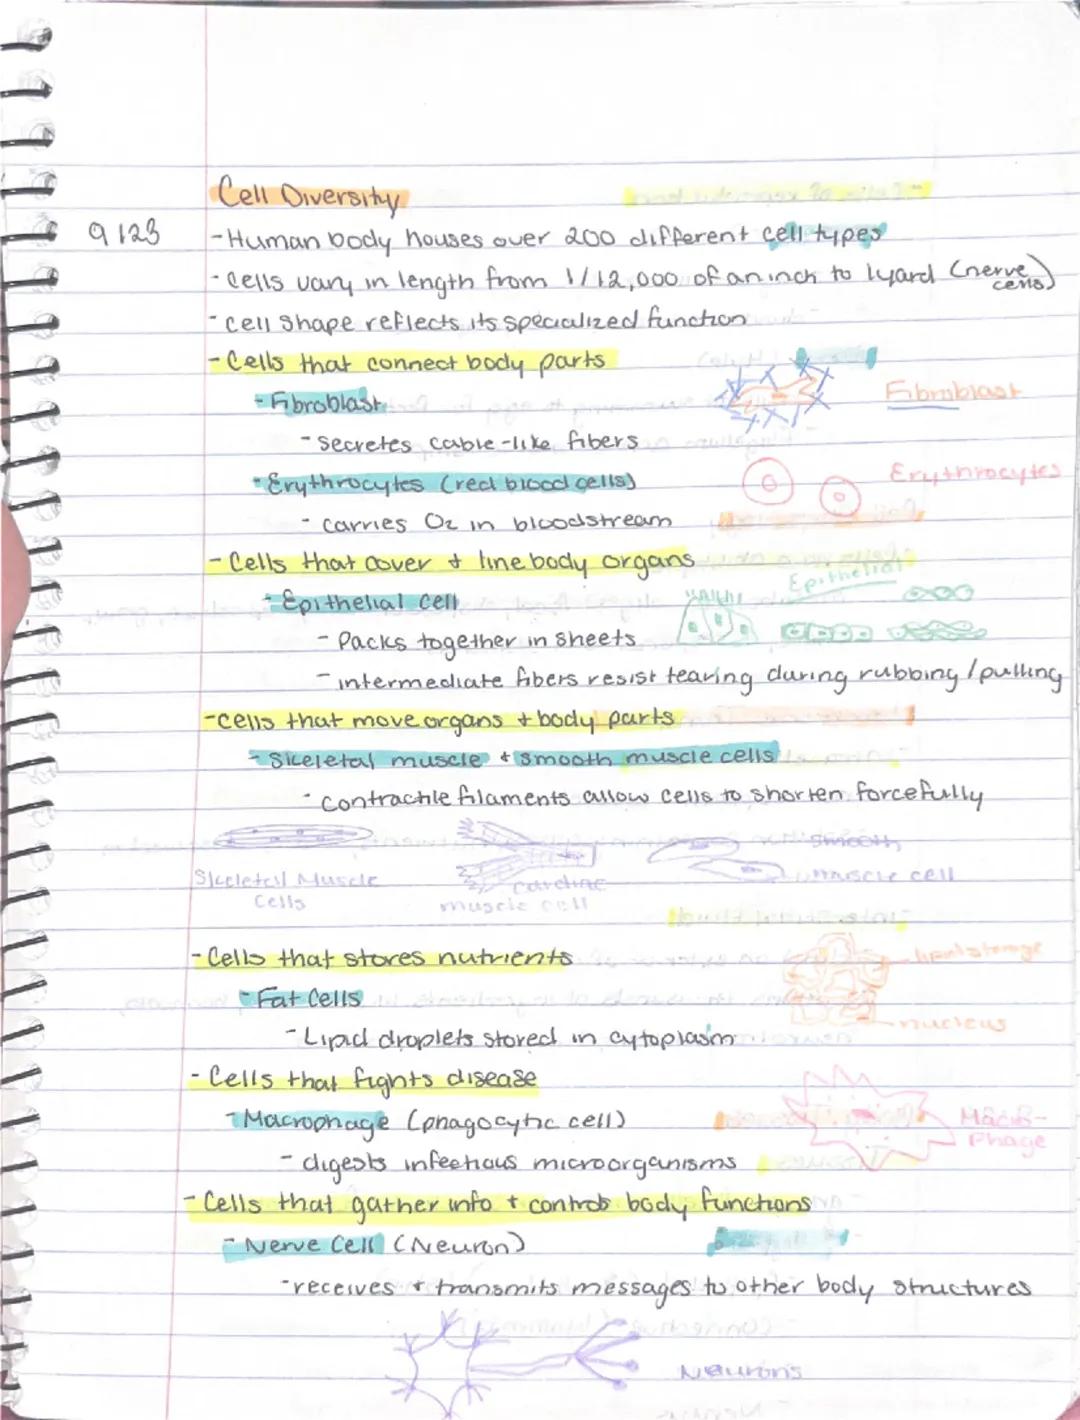 Cell Diversity
9123
- Human body houses over 200 different cell types
- Cells vary in length from 1/12,000 of an inch to 1yard (nerve cells)
- cell shape reflects its specialized function
- Cells that connect body parts
- Fibroblast
Fibroblast
- secretes cable-like fibers
- Erythrocytes (red blood cells)
Erythrocytes
- carries O2 in bloodstream
- Cells that cover + line body organs
- Epithelial cell
Epithelial
- Packs together in sheets
- intermediate fibers resist tearing during rubbing/pulling
- cells that move organs + body parts
- Skeletal muscle + smooth muscle cells
- contractile filaments allow cells to shorten forcefully
Skeletal Muscle
Cells
cardiac
muscle cell
smooth
muscle cell
- Cells that stores nutrients
- Fat Cells
- Lipid droplets stored in cytoplasm
nucleus
- Cells that fights disease
- Macrophage (phagocytic cell)
Macro-
phage
- digests infectious microorganisms
- Cells that gather info + control body functions
- Nerve Cell (Neuron)
- receives + transmits messages to other body structures
Neurons